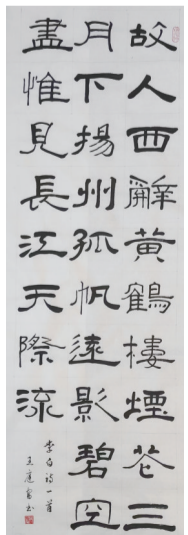 故人西辭黃鶴樓煙花三
月下揚州孤帆遠影碧空
盡惟見長江天際流
李白詩一首